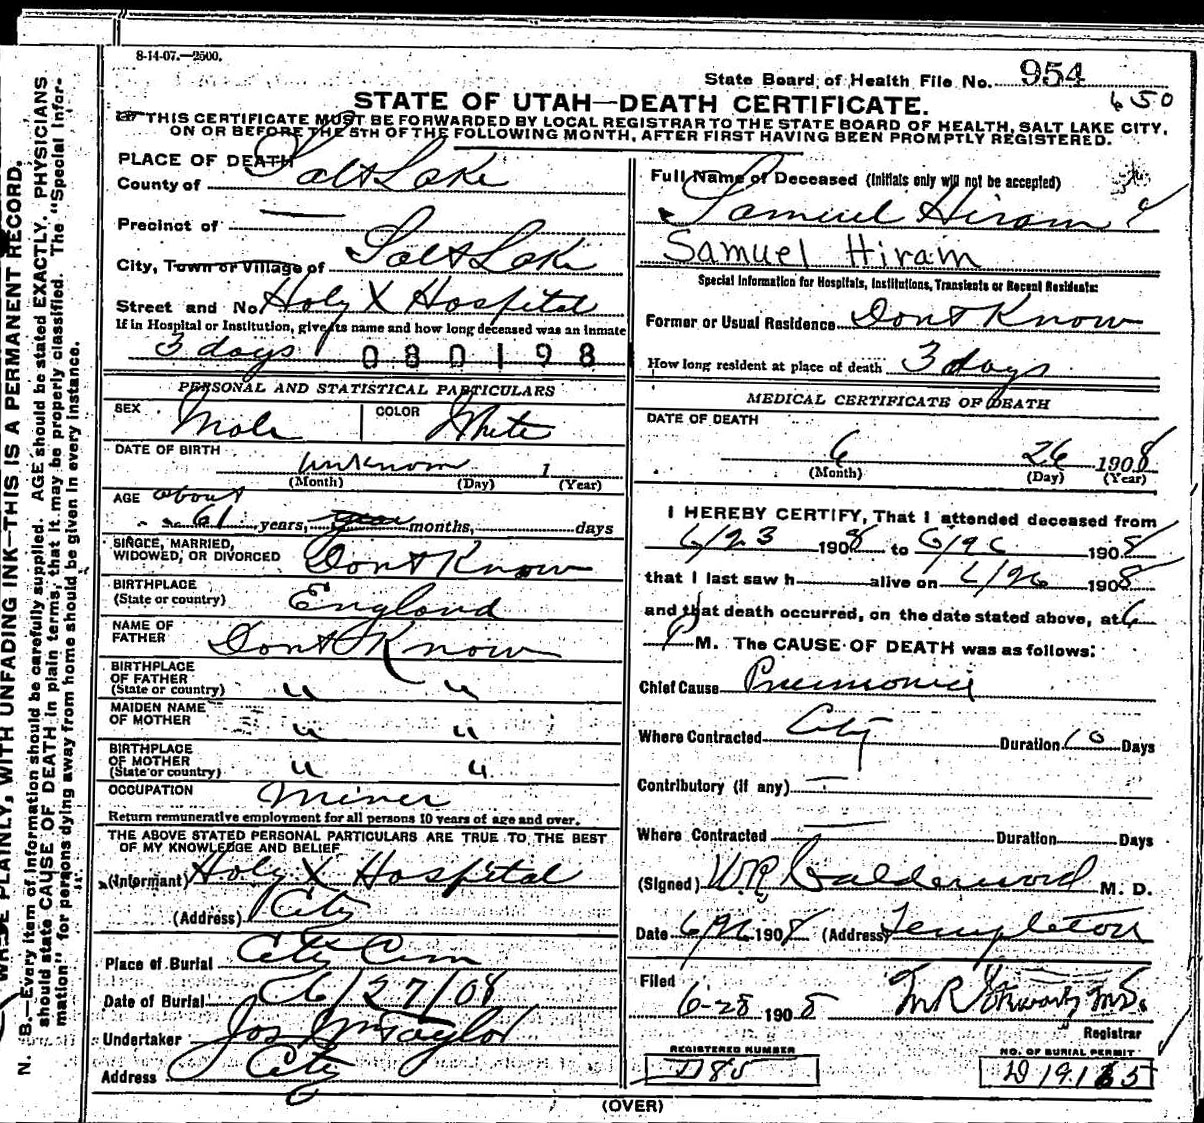 8-14-07.—2500.
State Board of Health File No. 954
650
STATE OF UTAH—DEATH CERTIFICATE.
THIS CERTIFICATE MUST BE FORWARDED BY LOCAL REGISTRAR TO THE STATE BOARD OF HEALTH, SALT LAKE CITY,
ON OR BEFORE THE 5TH OF THE FOLLOWING MONTH, AFTER FIRST HAVING BEEN PROMPTLY REGISTERED.
PLACE OF DEATH
County of Salt Lake
Precinct of —
City, Town or Village of Salt Lake
Street and No. Holy X Hospital
If in Hospital or Institution, give its name and how long deceased was an inmate
3 days 080198
PERSONAL AND STATISTICAL PARTICULARS
SEX Male COLOR White
DATE OF BIRTH
unknown 1
(Month) (Day) (Year)
AGE about
61 years, months, days
SINGLE, MARRIED,
WIDOWED, OR DIVORCED Dont Know
BIRTHPLACE
(State or country) England
NAME OF
FATHER Dont Know
BIRTHPLACE
OF FATHER
(State or country) " "
MAIDEN NAME
OF MOTHER " "
BIRTHPLACE
OF MOTHER
(State or country) " "
OCCUPATION Miner
Return remunerative employment for all persons 10 years of age and over.
THE ABOVE STATED PERSONAL PARTICULARS ARE TRUE TO THE BEST
OF MY KNOWLEDGE AND BELIEF
(Informant) Holy X Hospital
(Address) City
Place of Burial City Cem
Date of Burial 6/27/08
Undertaker Jos Wm Taylor
Address City
Full Name of Deceased (Initials only will not be accepted)
Samuel Hiram
Samuel Hiram
Special Information for Hospitals, Institutions, Transients or Recent Residents:
Former or Usual Residence Dont Know
How long resident at place of death 3 days
MEDICAL CERTIFICATE OF DEATH
DATE OF DEATH
6 26 1908
(Month) (Day) (Year)
I HEREBY CERTIFY, That I attended deceased from
6/23 1908 to 6/26 1908
that I last saw h alive on 6/26 1908
and that death occurred, on the date stated above, at 6
P M. The CAUSE OF DEATH was as follows:
Chief Cause Pneumonia
Where Contracted City Duration 10 Days
Contributory (if any) —
Where Contracted — Duration Days
(Signed) W.R. Calderwood M. D.
Date 6/26 1908 (Address) Templeton
Filed
6-28 1908 M.D.
Registrar
REGISTERED NUMBER
NO. OF BURIAL PERMIT
D 19165
(OVER)
WRITE PLAINLY, WITH UNFADING INK—THIS IS A PERMANENT RECORD.
N. B.—Every item of information should be carefully supplied. AGE should be stated EXACTLY. PHYSICIANS
should state CAUSE OF DEATH in plain terms, that it may be properly classified. The "Special Infor-
mation" for persons dying away from home should be given in every instance.